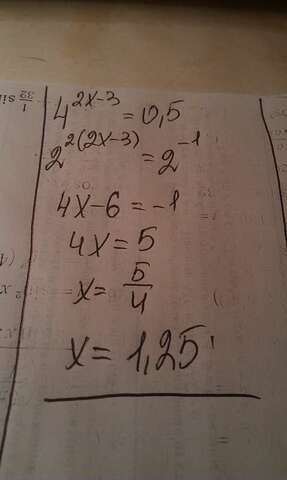 4^{2x-3} = 0,5
2^{2(2x-3)} = 2^{-1}
4x-6 = -1
4x = 5
x = \frac{5}{4}
x = 1,25
\frac{1}{32} sin